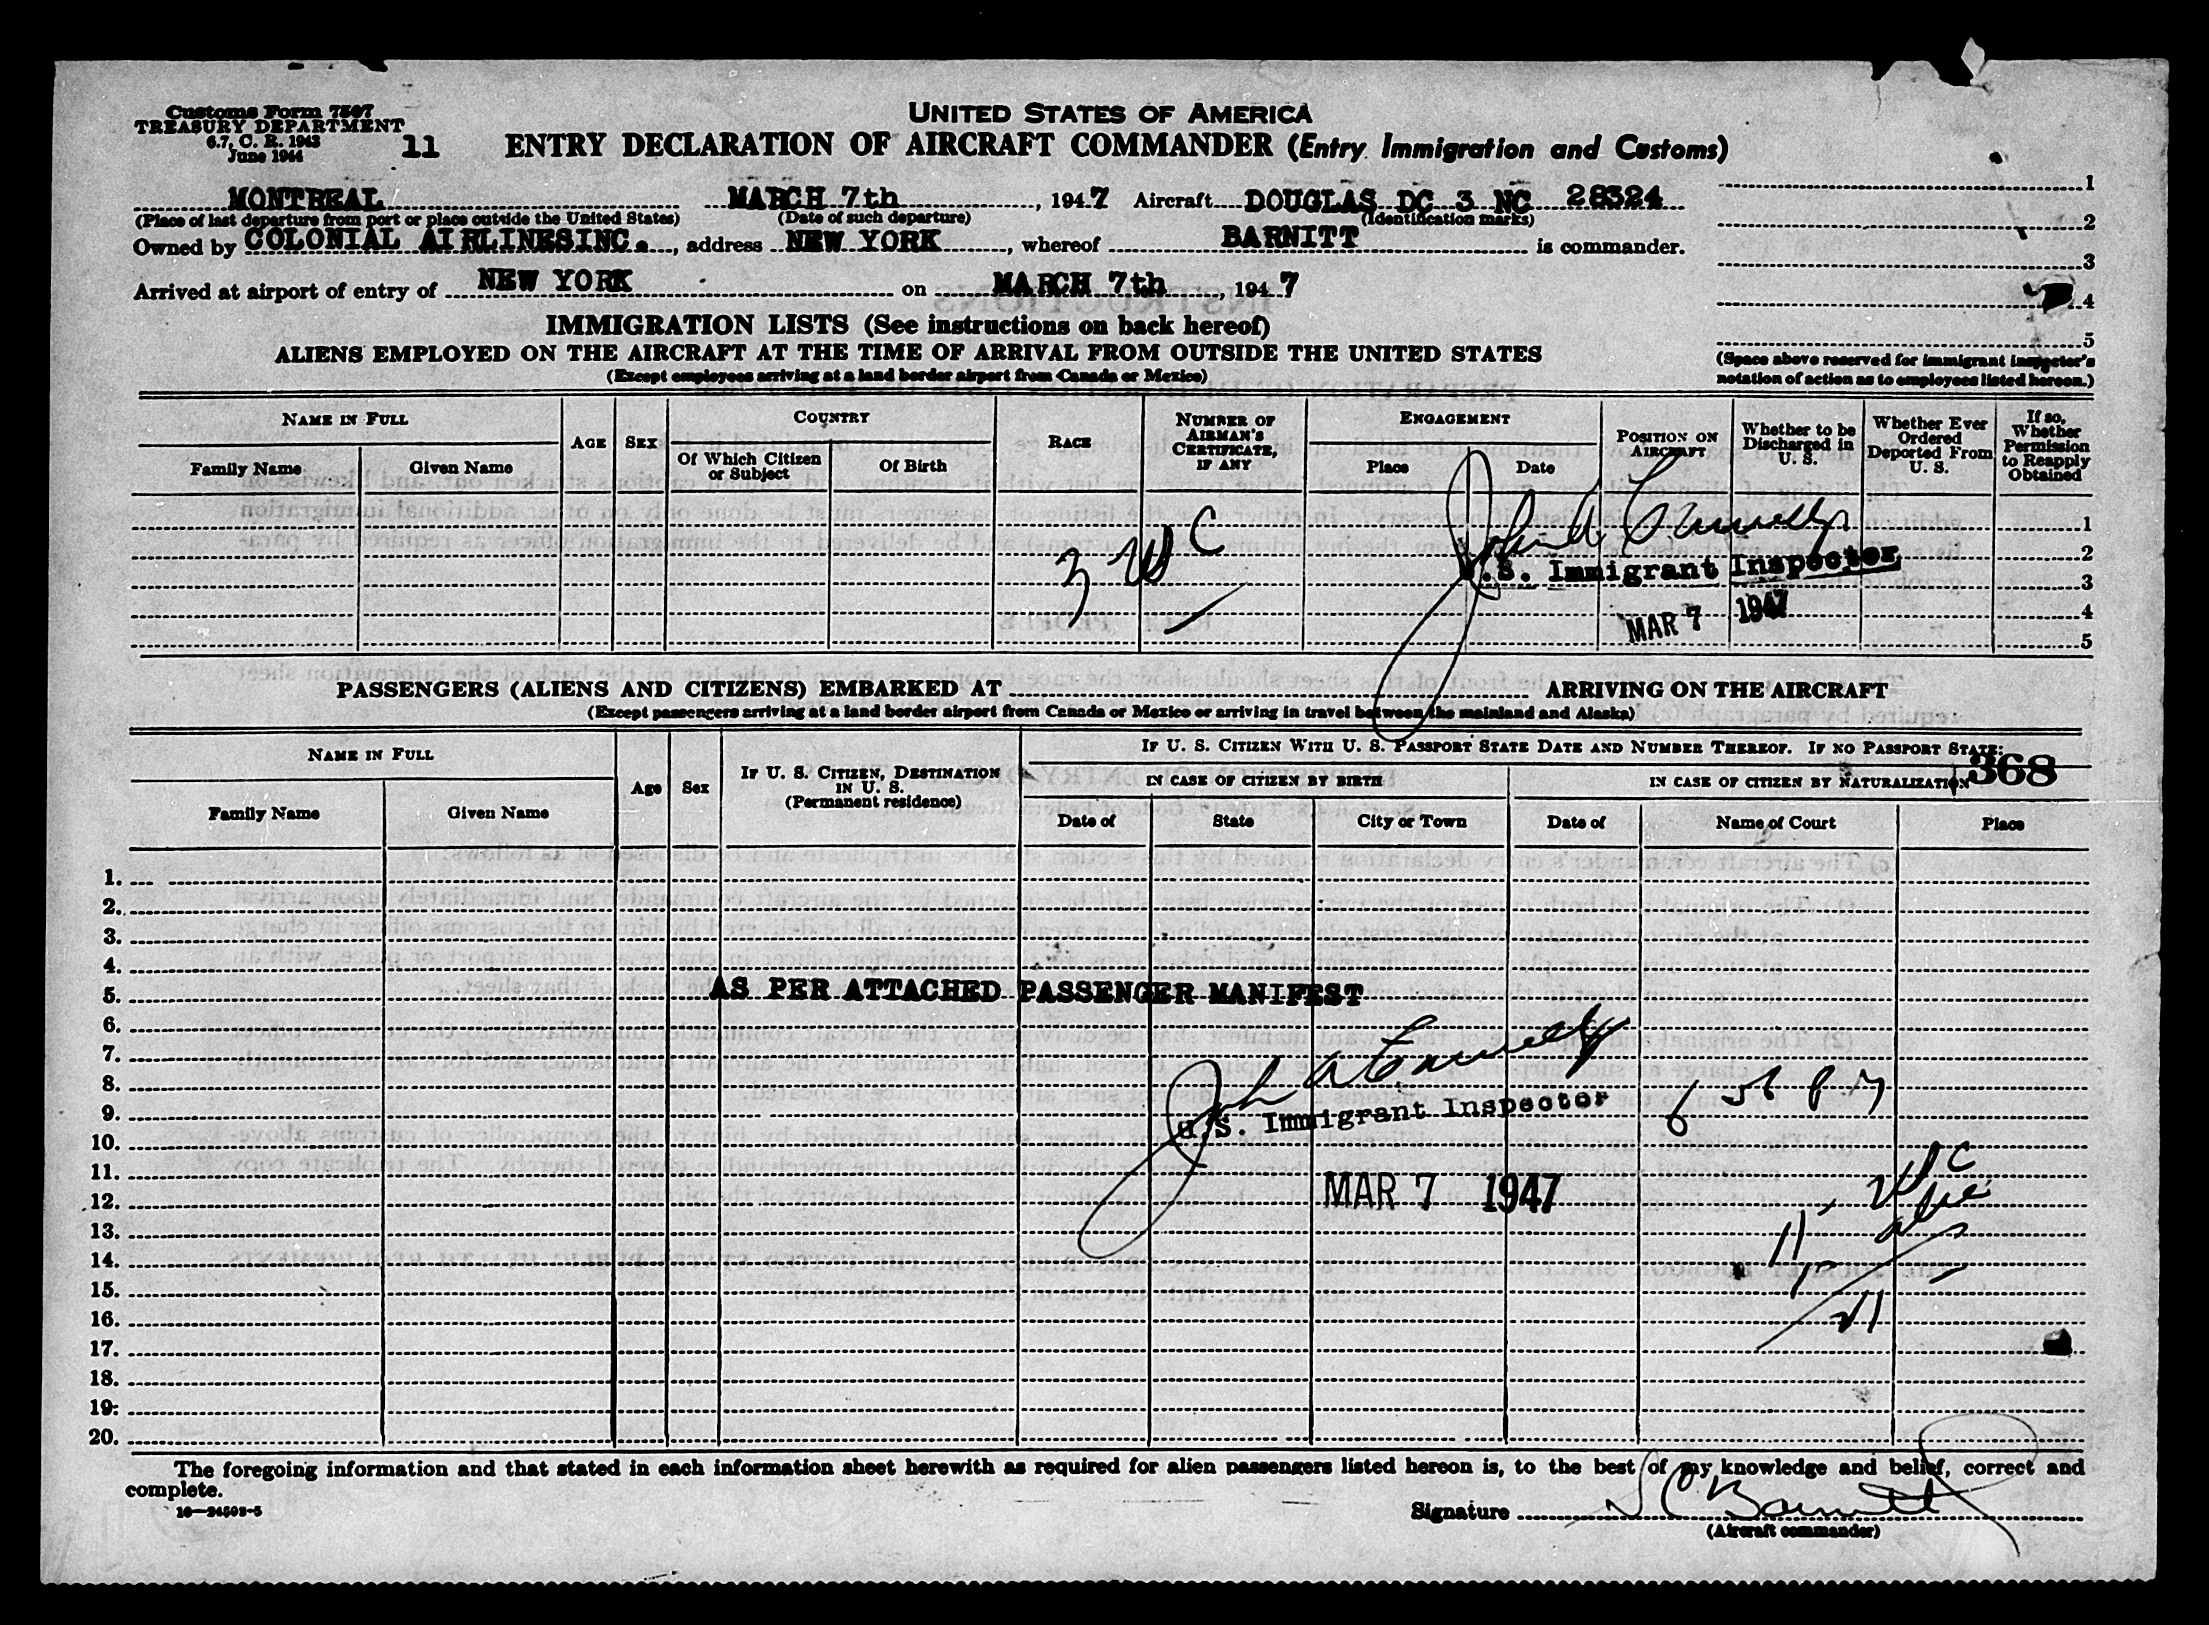 Customs Form 7507
TREASURY DEPARTMENT
6.7, C. R. 1943
June 1944
11
UNITED STATES OF AMERICA
ENTRY DECLARATION OF AIRCRAFT COMMANDER (Entry Immigration and Customs)
MONTREAL MARCH 7th, 1947 Aircraft DOUGLAS DC 3 NC 28324
(Place of last departure from port or place outside the United States) (Date of such departure) (Identification marks)
Owned by COLONIAL AIRLINES INC., address NEW YORK, whereof BARNITT is commander.
Arrived at airport of entry of NEW YORK on MARCH 7th, 1947
1
2
3
4
5
(Space above reserved for immigrant inspector's
notation of action as to employees listed hereon.)
IMMIGRATION LISTS (See instructions on back hereof)
ALIENS EMPLOYED ON THE AIRCRAFT AT THE TIME OF ARRIVAL FROM OUTSIDE THE UNITED STATES
(Except employees arriving at a land border airport from Canada or Mexico)
NAME IN FULL
Family Name
Given Name
AGE
SEX
COUNTRY
Of Which Citizen or Subject
Of Birth
RACE
NUMBER OF AIRMAN'S CERTIFICATE, IF ANY
ENGAGEMENT
Place
Date
POSITION ON AIRCRAFT
Whether to be Discharged in U. S.
Whether Ever Ordered Deported From U. S.
If so, Whether Permission to Reapply Obtained
1
2
3
4
5
3 USC
U.S. Immigrant Inspector
MAR 7 1947
PASSENGERS (ALIENS AND CITIZENS) EMBARKED AT ARRIVING ON THE AIRCRAFT
(Except passengers arriving at a land border airport from Canada or Mexico or arriving in travel between the mainland and Alaska)
NAME IN FULL
Family Name
Given Name
Age
Sex
IF U. S. CITIZEN, DESTINATION IN U. S.
(Permanent residence)
IF U. S. CITIZEN WITH U. S. PASSPORT STATE DATE AND NUMBER THEREOF. IF NO PASSPORT STATE:
368
IN CASE OF CITIZEN BY BIRTH
IN CASE OF CITIZEN BY NATURALIZATION
Date of
State
City or Town
Date of
Name of Court
Place
1.
2.
3.
4.
5.
AS PER ATTACHED PASSENGER MANIFEST
6.
7.
8.
9.
10.
U.S. Immigrant Inspector
11.
12.
MAR 7 1947
13.
14.
15.
16.
17.
18.
19.
20.
The foregoing information and that stated in each information sheet herewith as required for alien passengers listed hereon is, to the best of my knowledge and belief, correct and
complete.
16—24503-5
Signature
(Aircraft commander)